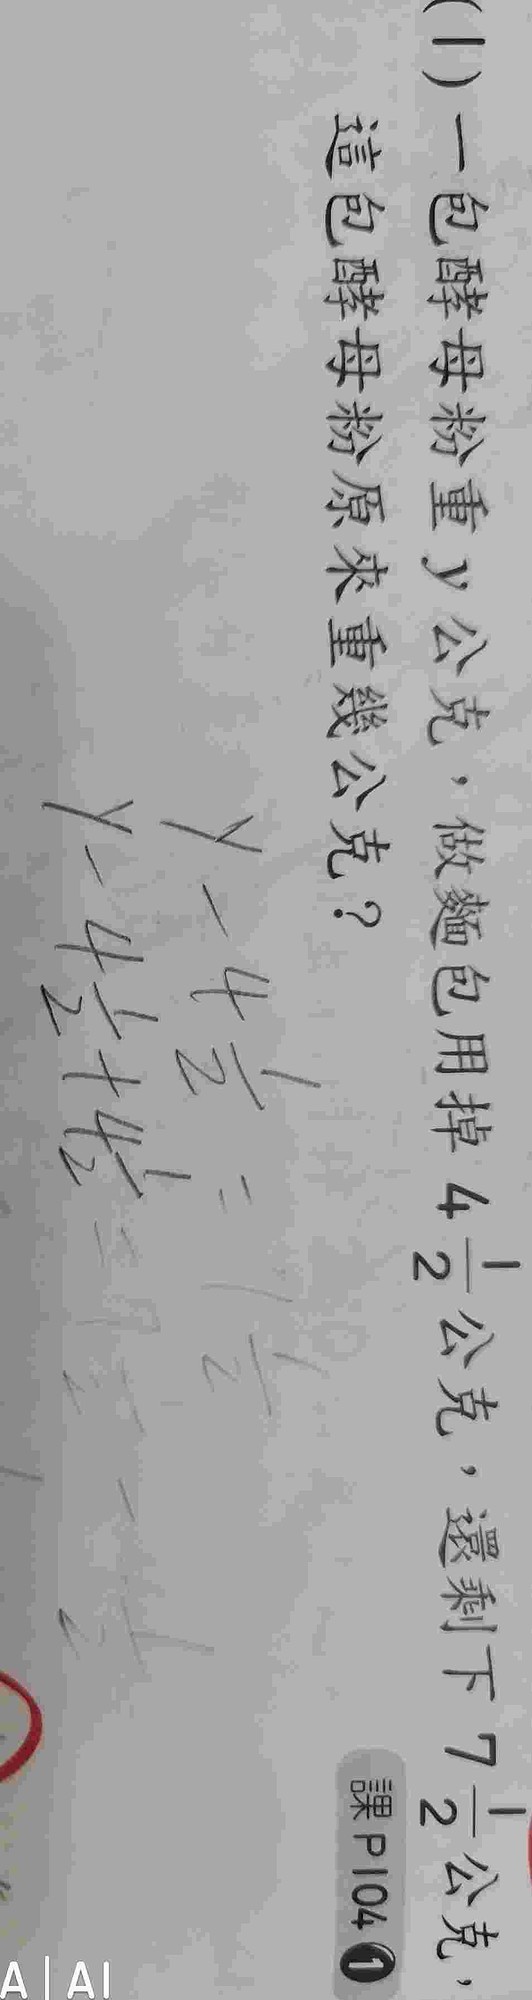 (1) 一包酵母粉重y公克，做麵包用掉4 1/2公克，還剩下7 1/2公克，
這包酵母粉原來重幾公克？
課P104 1
y - 4 1/2 = 7 1/2
y - 4 1/2 + 4 1/2 =
A | AI